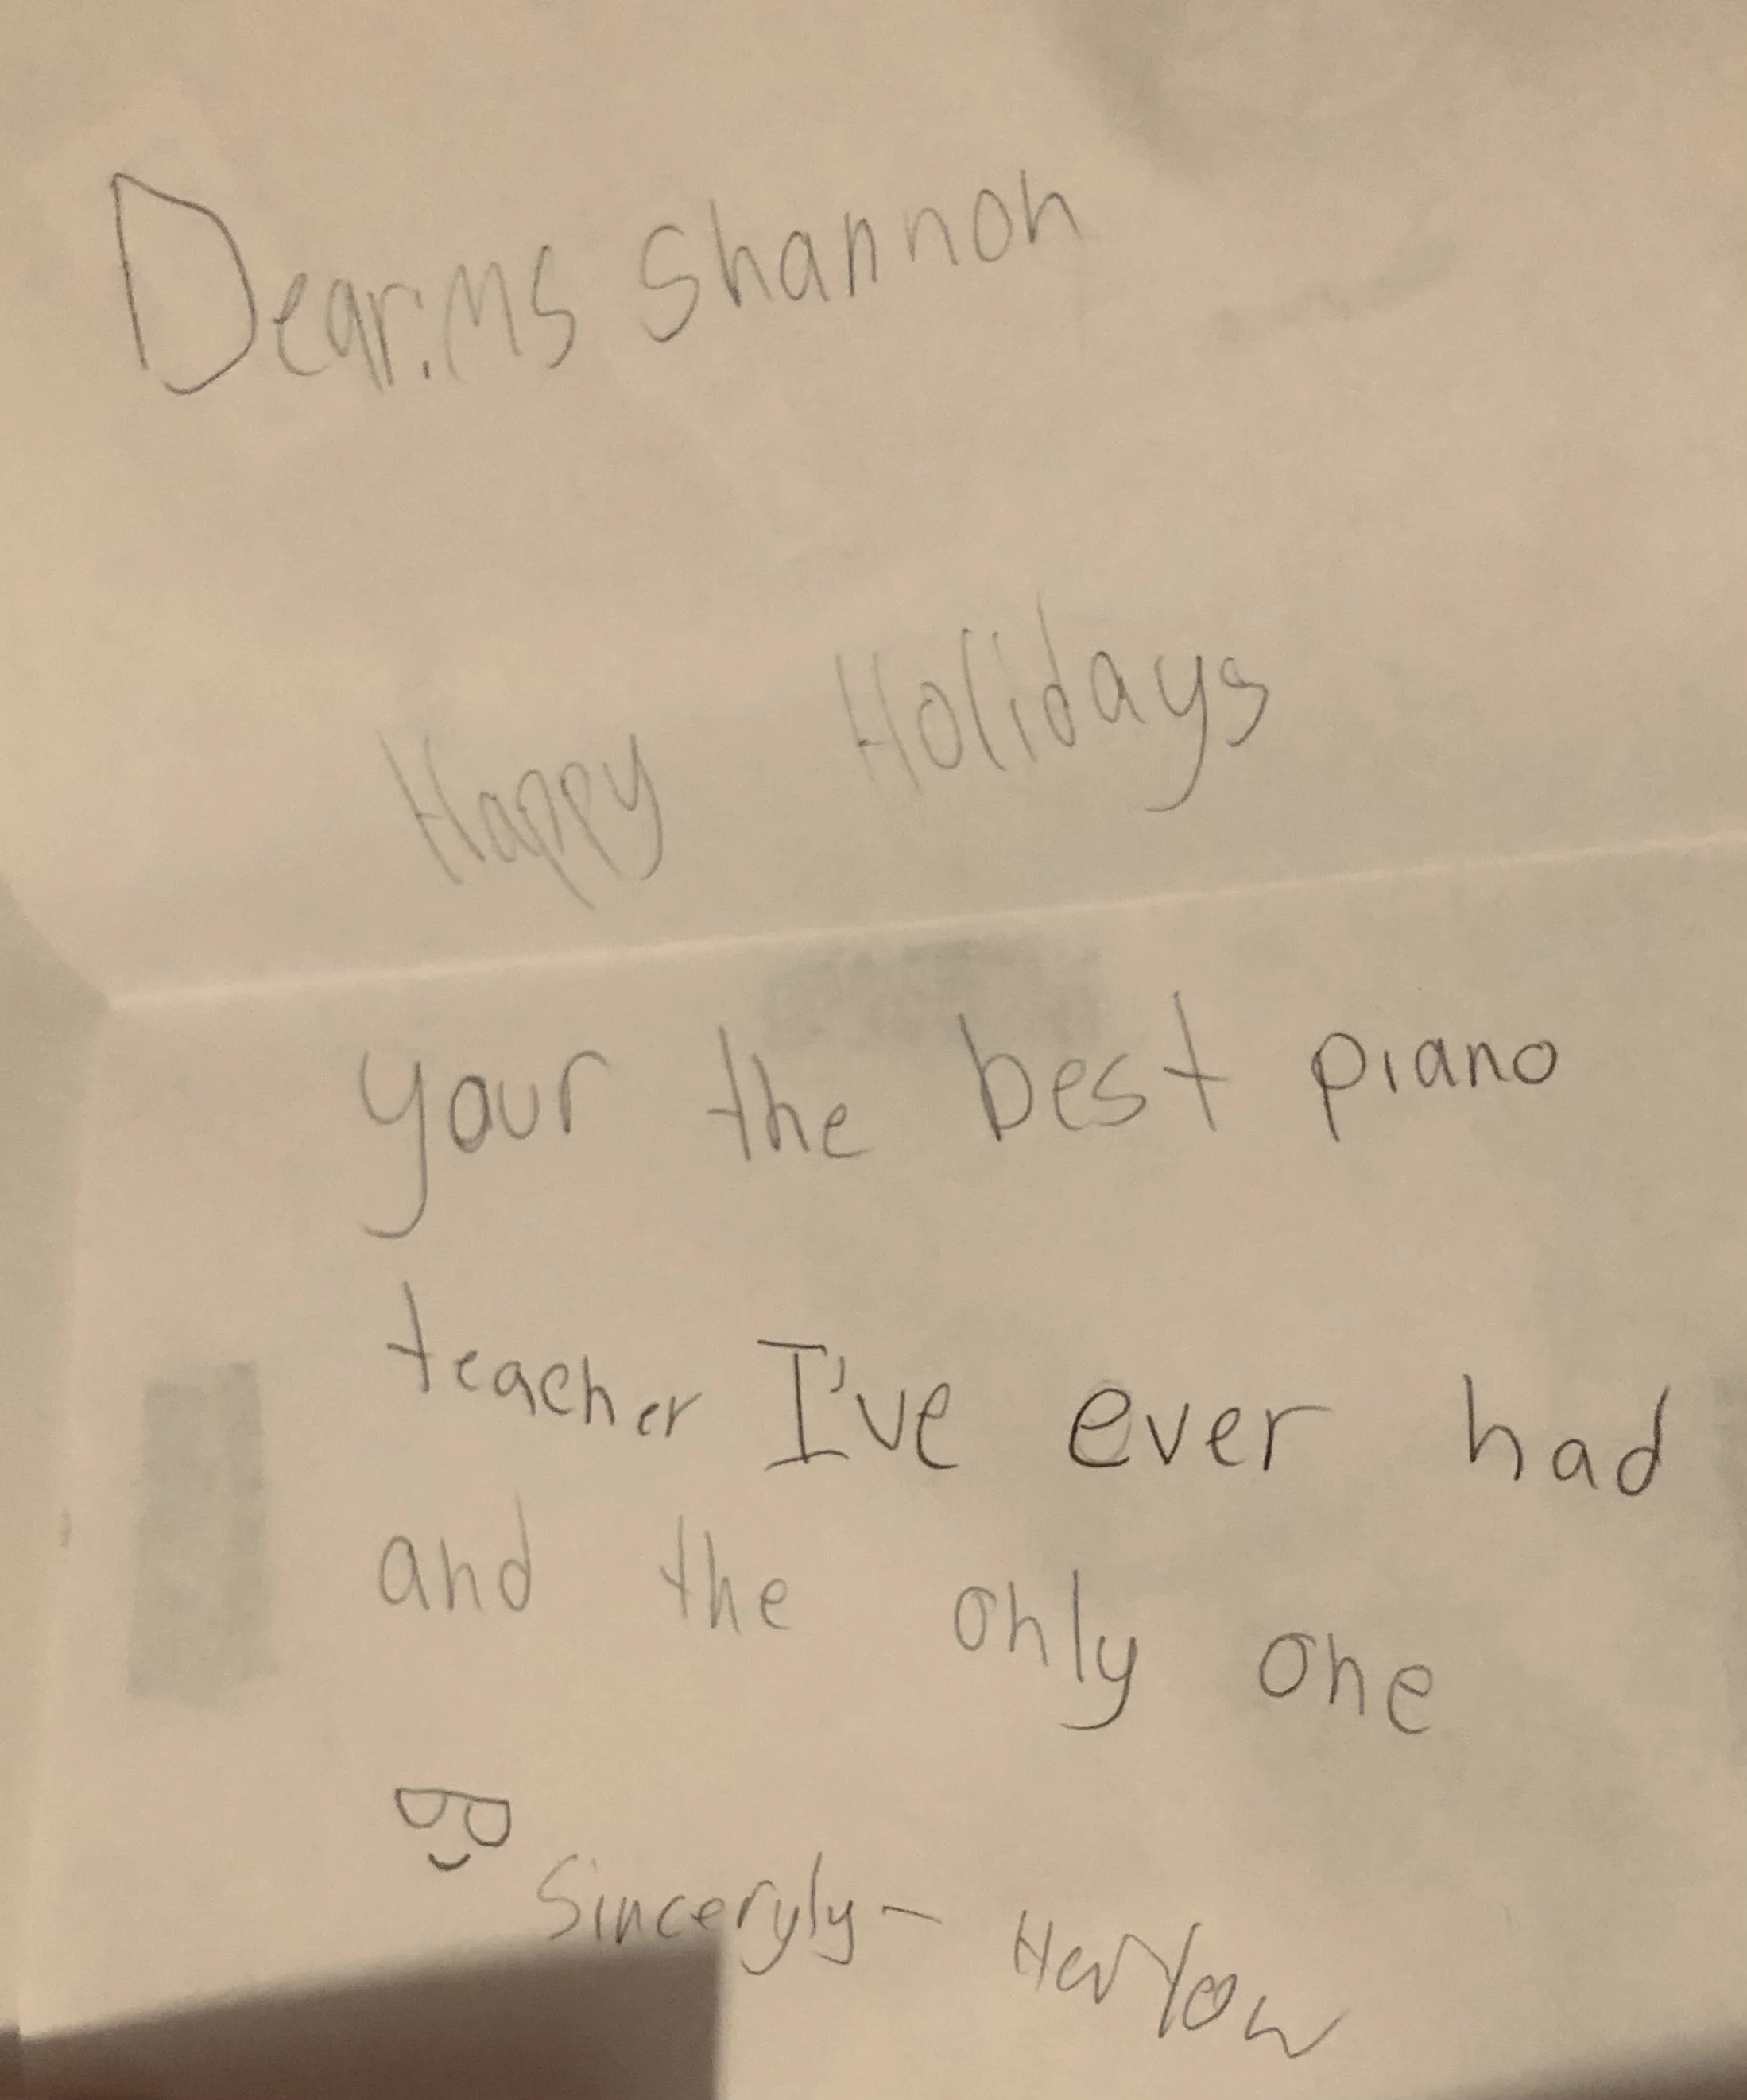 Dear.Ms Shannon
Happy Holidays
your the best piano
teacher I've ever had
and the only one
Sinceryly-